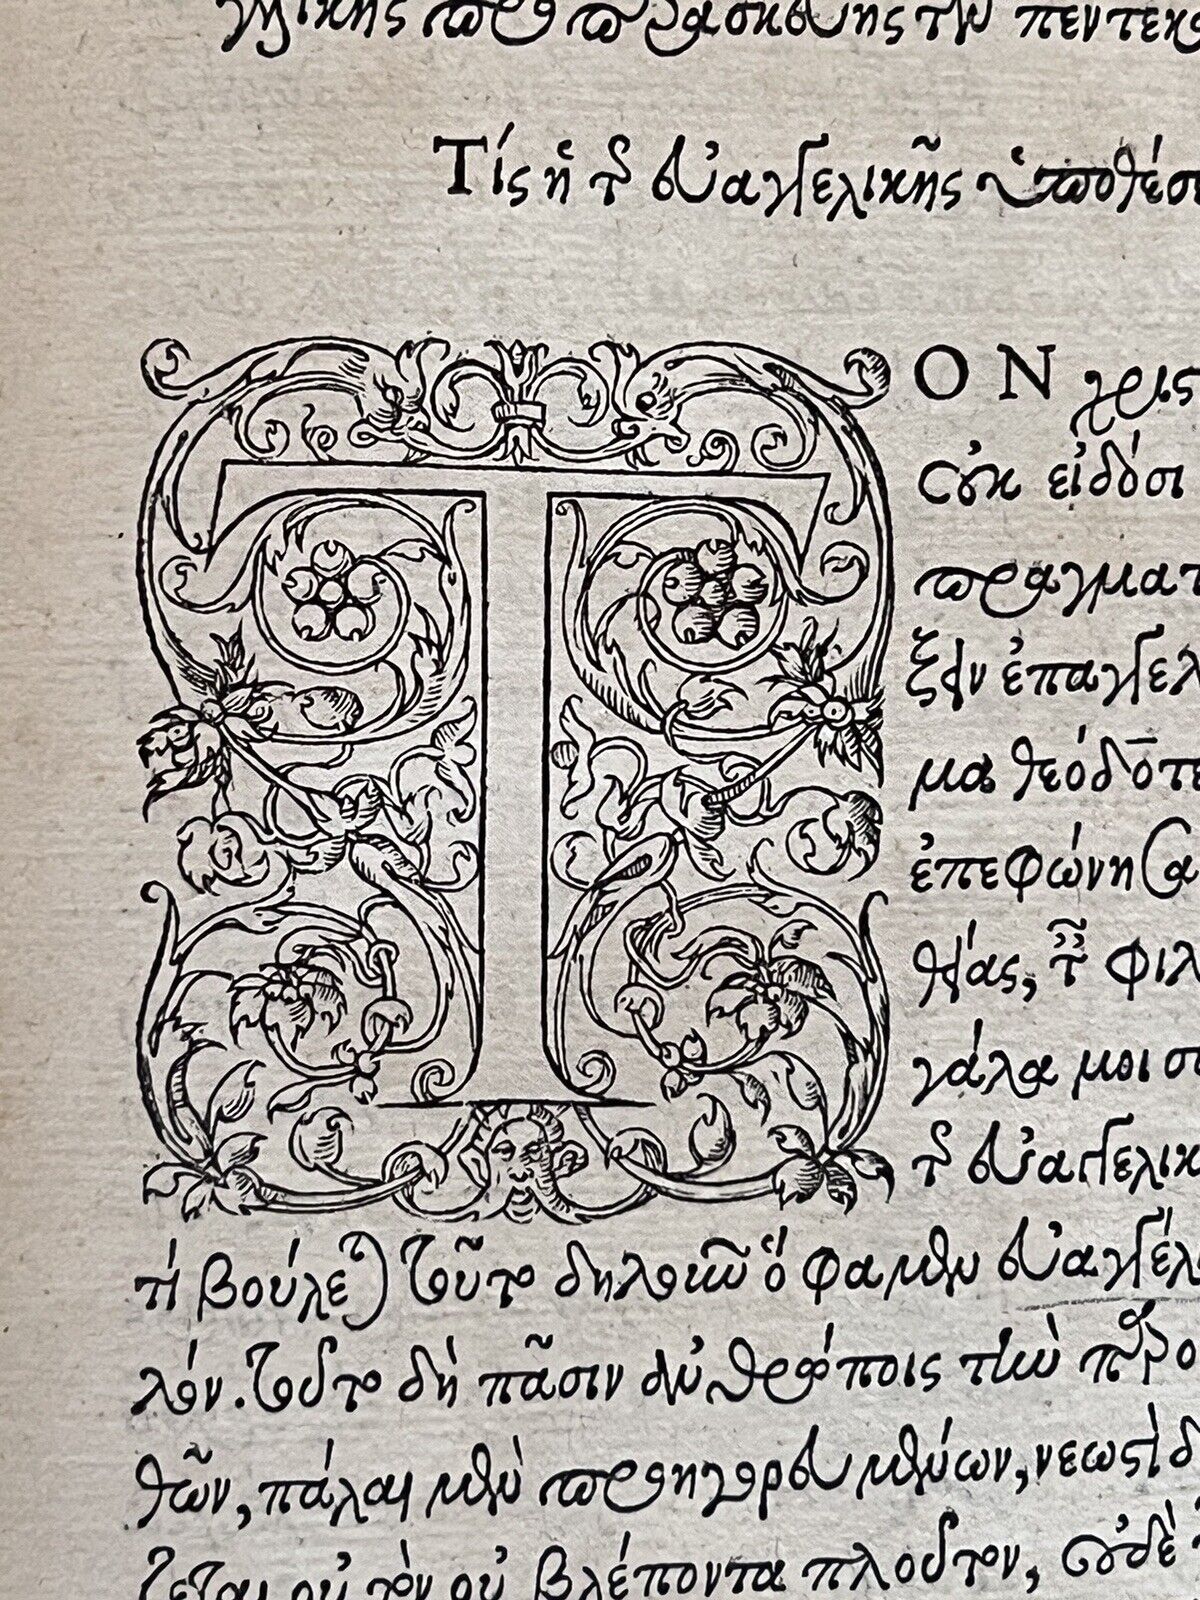 γελικῆς προπαρασκευῆς τῶν πεντεκ
Τίς ἡ τῆς εὐαγγελικῆς ὑποθέσε
ΤΟΝ χρις
οὐκ εἰδόσι
πραγματ
ξιν ἐπαγγελ
μα θεόδοτε
ἐπεφώνησα
θείας, τῆς φιλ
γάλα μοι σ
τῆς εὐαγγελικ
τί βούλεται τοῦτο δηλοῦν ὁ φάμεν εὐαγγέλ
λιον. τοῦτο δὴ πᾶσιν ἀνθρώποις τὴν π
θῶν, πάλαι μὲν προηγορευμένων, νεωστὶ δ
ζεται οὐ τὸν οὐ βλέποντα πλοῦτον, οὐδὲ